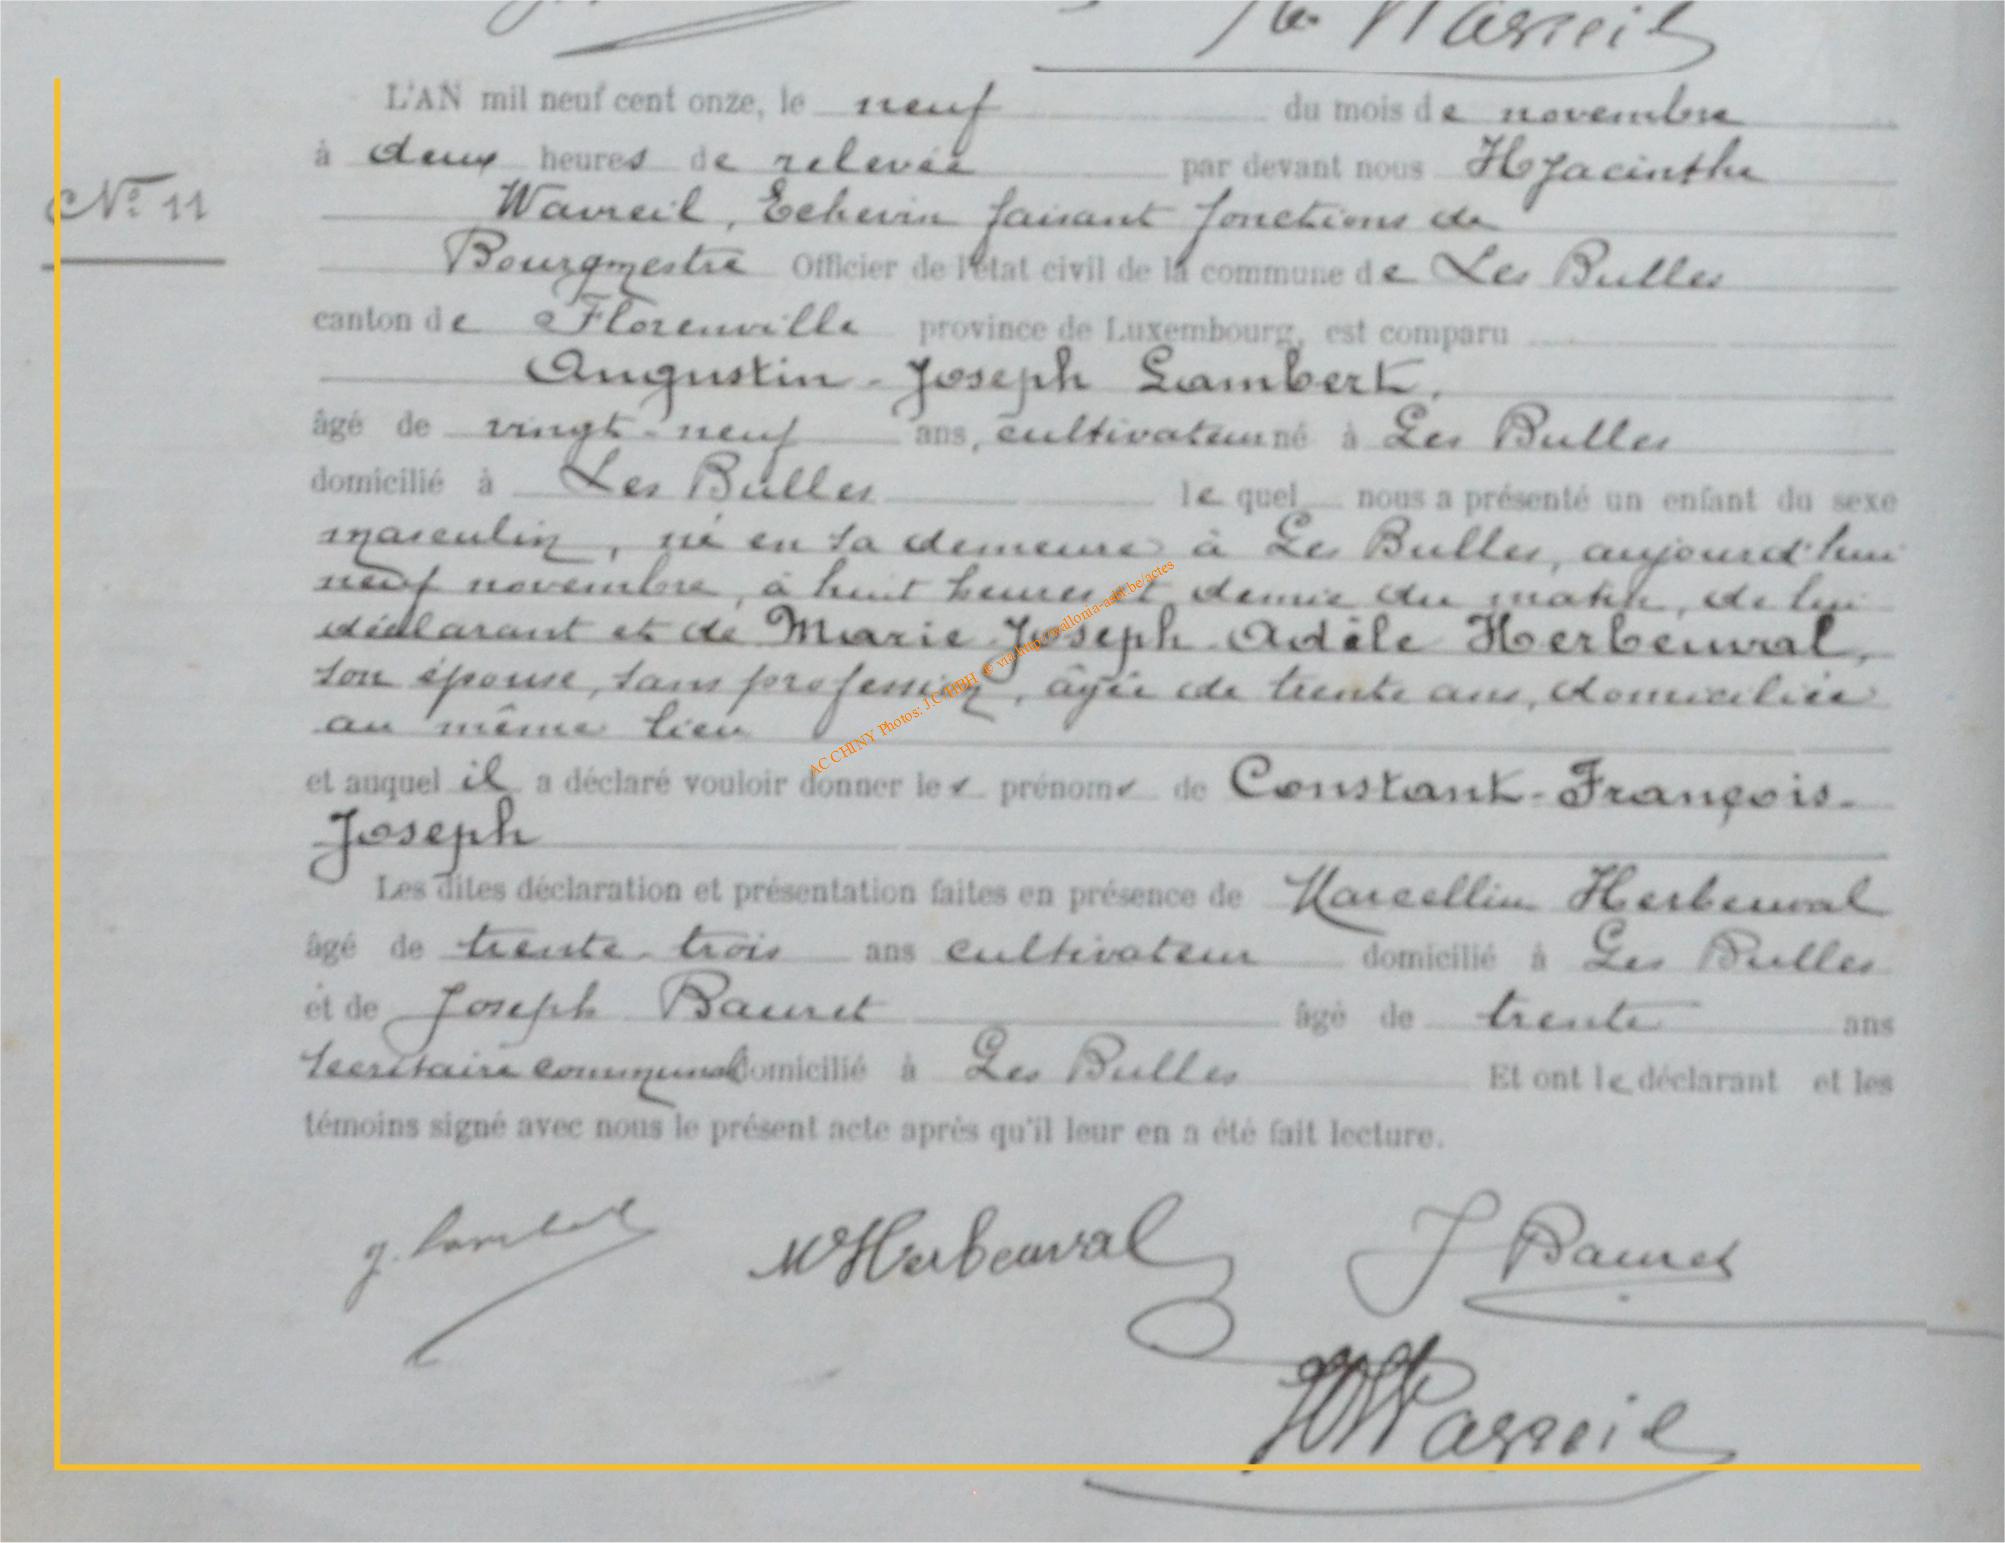 L'AN mil neuf cent onze, le neuf du mois de novembre
à deux heures de relevée par devant nous Hyacinthe
Nº 11
Wavreil, Echevin faisant fonctions de
Bourgmestre Officier de l'état civil de la commune de Les Bulles
canton de Florenville province de Luxembourg, est comparu
Augustin-Joseph Lambert,
âgé de vingt-neuf ans, cultivateur né à Les Bulles
domicilié à Les Bulles lequel nous a présenté un enfant du sexe
masculin, né en sa demeure à Les Bulles, aujourd'hui
neuf novembre, à huit heures et demie du matin, de lui
déclarant et de Marie-Joseph-Adèle Herbeuval,
son épouse, sans profession, âgée de trente ans, domiciliée
au même lieu
AC CHINY Photos: J.C/HBH © via http://wallonia-asbl.be/actes
et auquel il a déclaré vouloir donner les prénoms de Constant-François-
Joseph
Les dites déclaration et présentation faites en présence de Marcellin Herbeuval
âgé de trente-trois ans cultivateur domicilié à Les Bulles
et de Joseph Bauret âgé de trente ans
secrétaire communal domicilié à Les Bulles Et ont le déclarant et les
témoins signé avec nous le présent acte après qu'il leur en a été fait lecture.
M Herbeuval J Bauret
H Wavreil